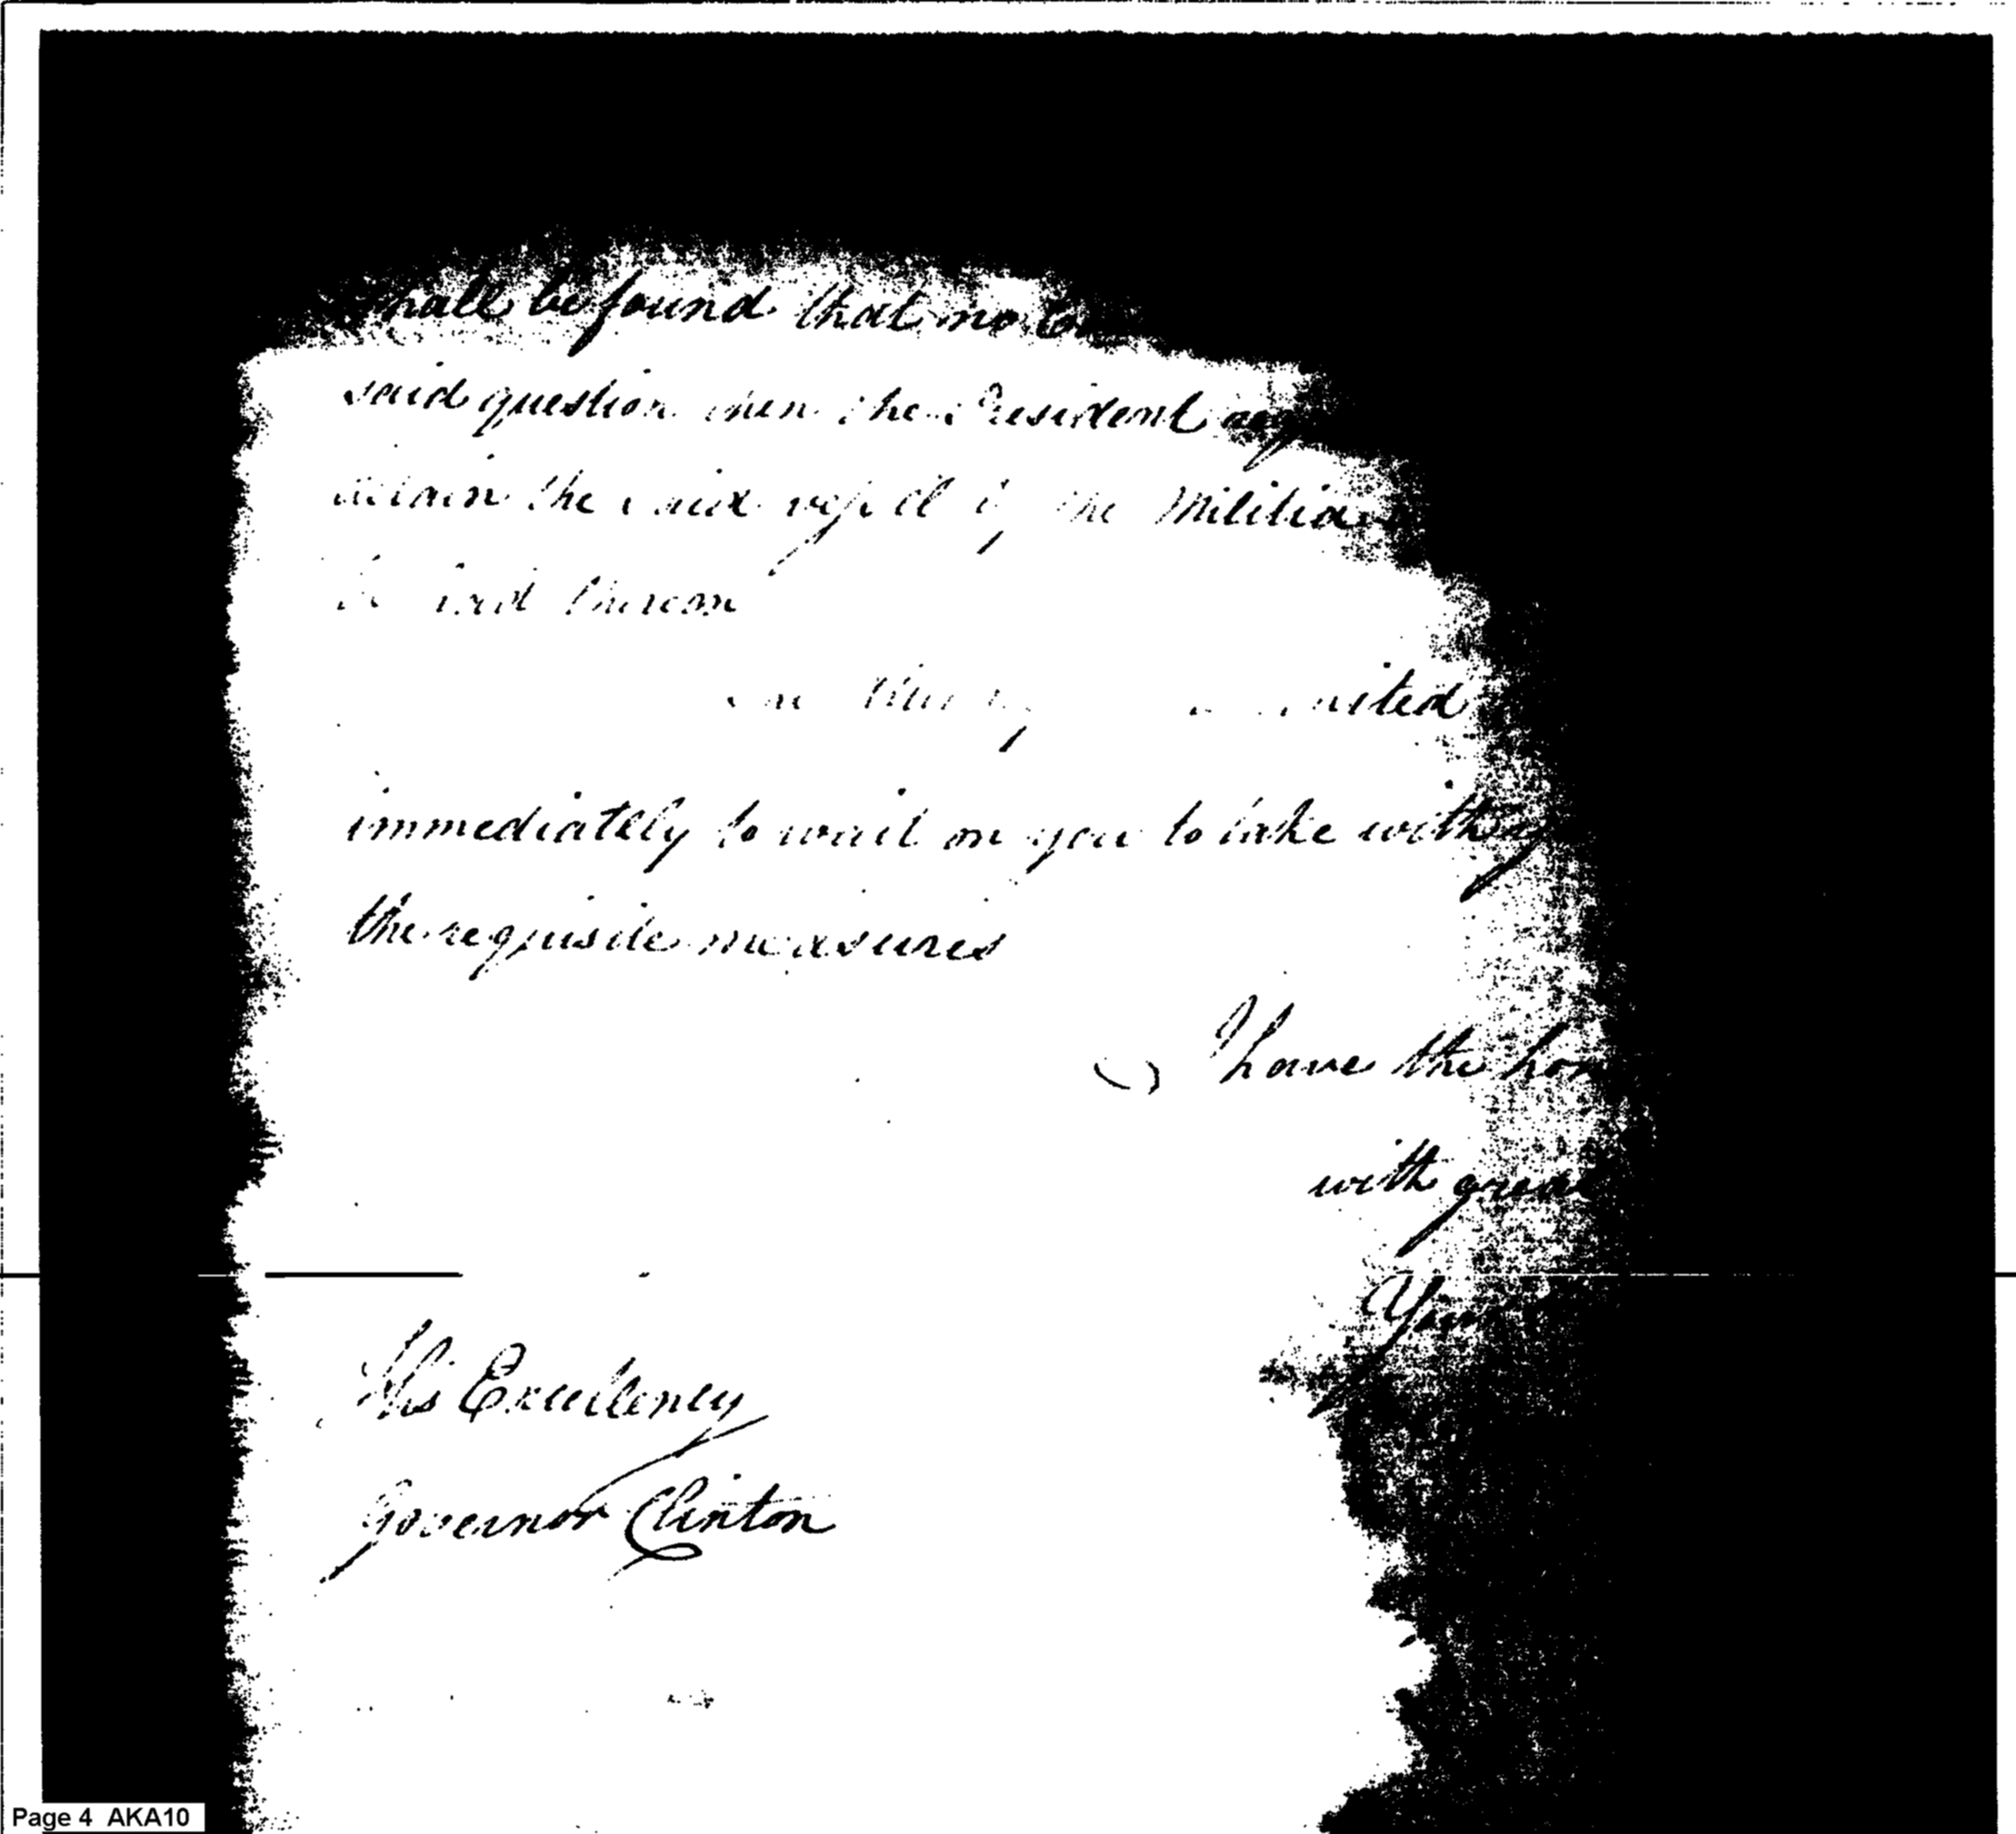 shall be found that no
said question then the President
detain the said vessel by the Militia
be had thereon
United
immediately to wait on you to take with
the requisite measures
I have the hon
with grea
You
His Excellency
Governor Clinton
Page 4 AKA10